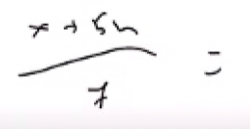 x + 5n
7 =